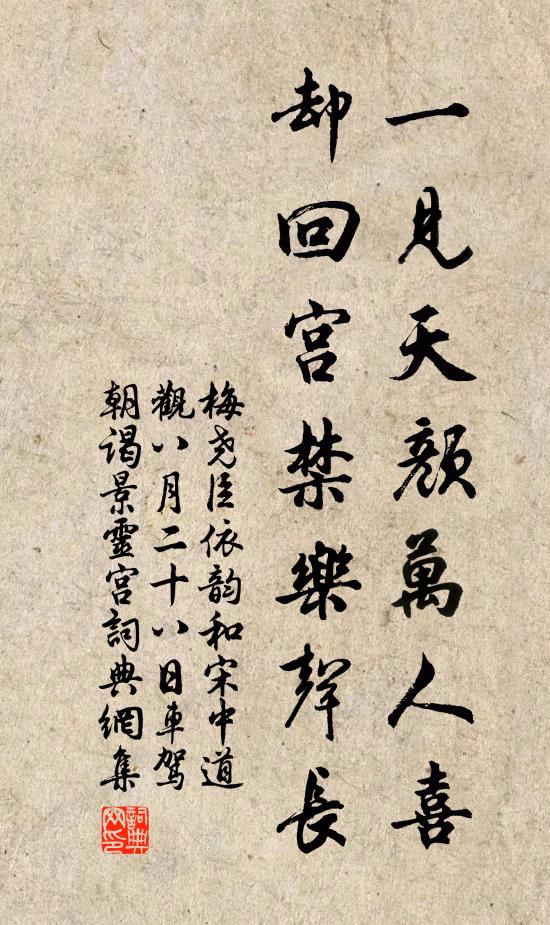 一見天顏萬人喜
却回宮禁樂聲長
梅堯臣依韻和宋中道
觀八月二十八日車駕
朝謁景靈宮詞典網集
詞典网印